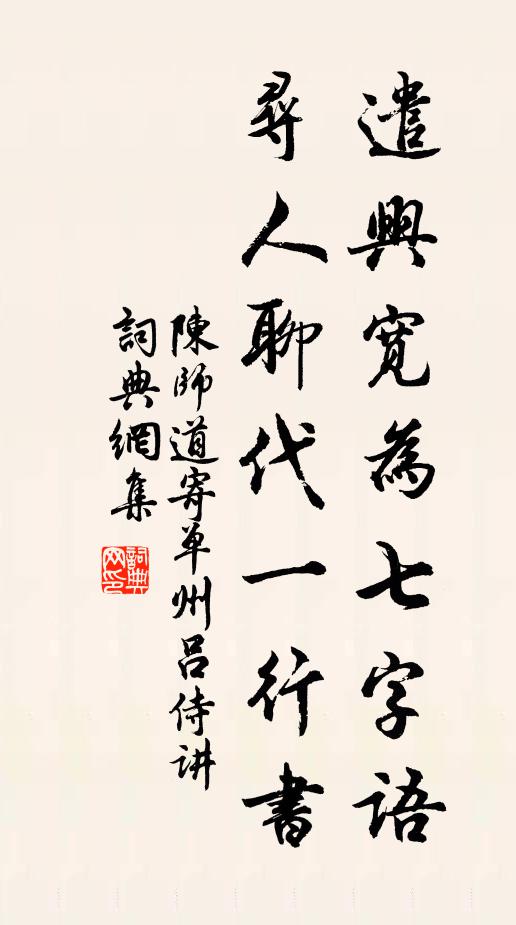 遣興寬為七字語
尋人聊代一行書
陳師道寄单州呂侍讲
詞典網集
詞典网印